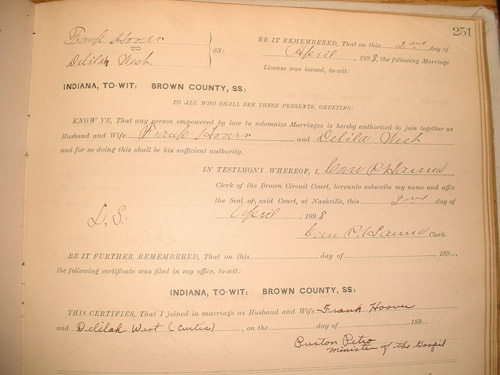 251
Frank Hoover
to
Delilah West
SS:
BE IT REMEMBERED, That on this 2nd day of
April, 1898, the following Marriage
License was issued, to-wit:
INDIANA, TO-WIT: BROWN COUNTY, SS:
TO ALL WHO SHALL SEE THESE PRESENTS, GREETING:
KNOW YE, That any person empowered by law to solemnize Marriages is hereby authorized to join together as
Husband and Wife Frank Hoover and Delilah West
and for so doing this shall be his sufficient authority.
IN TESTIMONY WHEREOF, I,
Clerk of the Brown Circuit Court, hereunto subscribe my name and affix
the Seal of said Court, at Nashville, this 2nd day of
L.S.
April, 1898
Clerk.
BE IT FURTHER REMEMBERED, That on this day of , 189 ,
the following certificate was filed in my office, to-wit:
INDIANA, TO-WIT: BROWN COUNTY, SS:
THIS CERTIFIES, That I joined in marriage as Husband and Wife Frank Hoover
and Delilah West (Curtis), on the day of 189
Preston Petro
Minister of the Gospil